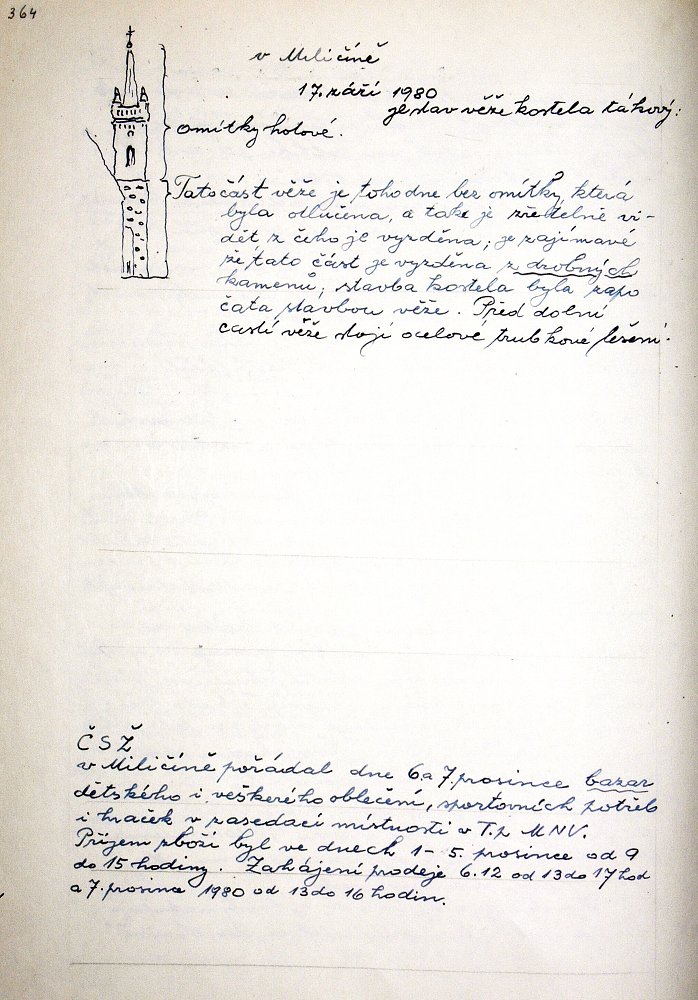 364
v Miličíně
17. září 1980
je stav věže kostela takový:
omítky hotové.
Tato část věže je toho dne bez omítky, která
byla otlučena, a také je zřetelně vi-
dět, z čeho je vyzděna; je zajímavé
že tato část je vyzděna z drobných
kamenů; stavba kostela byla zapo
čata stavbou věže. Před dolní
částí věže stojí ocelové trubkové lešení.
ČSŽ
v Miličíně pořádal dne 6. a 7. prosince bazar
dětského i veškerého oblečení, sportovních potřeb
i hraček v zasedací místnosti v T.z MNV.
Příjem zboží byl ve dnech 1 - 5. prosince od 9
do 15 hodiny. Zahájení prodeje 6.12 od 13 do 17 hod
a 7. prosince 1980 od 13 do 16 hodin.